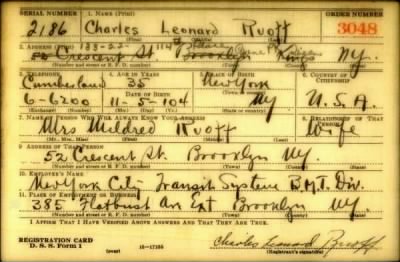 SERIAL NUMBER 1. NAME (Print) ORDER NUMBER
2186 Charles Leonard Ruoff 3048
133-22- 114
2. ADDRESS (Print)
52 Crescent St. Brooklyn Kings N.Y.
3. TELEPHONE 4. AGE IN YEARS 5. PLACE OF BIRTH 6. COUNTRY OF CITIZENSHIP
Cumberland 35 New York
DATE OF BIRTH
6-6200 11-5-104 NY U.S.A.
7. NAME OF PERSON WHO WILL ALWAYS KNOW YOUR ADDRESS 8. RELATIONSHIP OF THAT PERSON
Mrs Mildred Ruoff Wife
9. ADDRESS OF THAT PERSON
52 Crescent St. Brooklyn NY.
10. EMPLOYER'S NAME
New York City Transit System B.M.T. Div.
11. PLACE OF EMPLOYMENT OR BUSINESS
385 Flatbush Av Ext Brooklyn NY.
I AFFIRM THAT I HAVE VERIFIED ABOVE ANSWERS AND THAT THEY ARE TRUE.
REGISTRATION CARD
D. S. S. Form 1 (over) 16-17105 Charles Leonard Ruoff
(Registrant's signature)